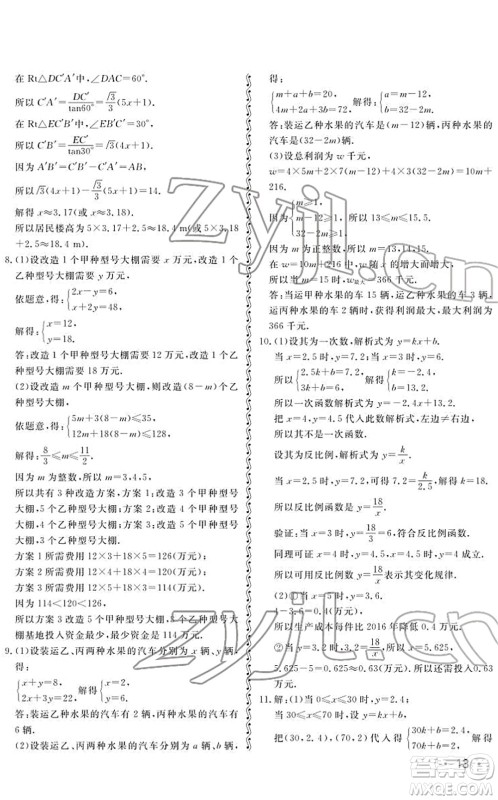 在 Rt△DC′A′中,∠DCA′=60°.
所以 C′A′=DC′/tan60°=√3/3(5x+1).
在 Rt△EC′B′中,∠EC′B′=30°.
所以 C′B′=EC′/tan30°=√3(4x+1).
因为 A′B′=C′B′-C′A′=AB.
所以√3(4x+1)-√3/3(5x+1)=14.
解得:x≈3.17(或 x≈3.18).
所以居民楼高为 5×3.17+2.5≈18.4 m(或5×3.18
+2.5≈18.4 m).
8.(1)设改造 1 个甲种型号大棚需要 x 万元,改造 1 个
乙种型号大棚需要 y 万元.
依题意,得:{2x-y=6,
x+2y=48,
解得:{x=12,
y=18.
答:改造 1 个甲种型号大棚需要 12 万元,改造 1 个乙
种型号大棚需要 18 万元.
(2)设改造 m 个甲种型号大棚,则改造(8-m)个乙
种型号大棚.
依题意,得:{5m+3(8-m)≤35,
12m+18(8-m)≤128,
解得:8/3≤m≤11/2.
因为 m 为整数,所以 m=3,4,5.
所以共有 3 种改造方案:方案 1:改造 3 个甲种型号
大棚,5 个乙种型号大棚;方案 2:改造 4 个甲种型号
大棚,4 个乙种型号大棚;方案 3:改造 5 个甲种型号
大棚,3 个乙种型号大棚.
方案 1 所需费用 12×3+18×5=126(万元);
方案 2 所需费用 12×4+18×4=120(万元);
方案 3 所需费用 12×5+18×3=114(万元).
因为 114<120<126,
所以方案 3 改造 5 个甲种型号大棚,3 个乙种型号大
棚基地投入资金最少,最少资金是 114 万元.
9.(1)设装运乙、丙两种水果的汽车分别为 x 辆,y 辆,
得:
{x+y=8,
2x+3y=22,
解得:{x=2,
y=6.
答:装运乙种水果的汽车有 2 辆,丙种水果的汽车有
6 辆.
(2)设装运乙、丙两种水果的汽车分别为 a 辆,b 辆,
得:
{m+a+b=20,
4m+2a+3b=72,
解得:{a=m-12,
b=32-2m.
答:装运乙种水果的汽车是(m-12)辆,丙种水果的
汽车是(32-2m)辆.
(3)设总利润为 w 千元,
w=4×5m+2×7(m-12)+4×3(32-2m)=10m+
216.
因为{m≥1,
m-12≥1,
32-2m≥1,
所以 13≤m≤15.5.
因为 m 为正整数,所以 m=13,14,15.
在 w=10m+216 中,w 随 m 的增大而增大,
所以当 m=15 时,w最大=366 千元.
答:当运甲水果的车 15 辆,运乙水果的车 3 辆,运丙
水果的车 2 辆,利润最大,最大利润为
366 千元.
10.(1)设其为一次函数,解析式为 y=kx+b,
当 x=2.5 时,y=7.2,当 x=3 时,y=6,
所以{2.5k+b=7.2,
3k+b=6,
解得{k=-2.4,
b=13.2,
所以一次函数解析式为 y=-2.4x+13.2,
把 x=4,y=4.5 代入此函数解析式,左边≠右边,
所以其不是一次函数.
设其为反比例函数,解析式为 y=k/x,
当 x=2.5 时,y=7.2,可得 7.2=k/2.5,解得 k=18,
所以反比例函数是 y=18/x,
验证:当 x=3 时,y=18/3=6,符合反比例函数.
同理可验证 x=4 时,y=4.5,x=4.5 时,y=4 成立,
可用反比例函数 y=18/x 表示其变化规律.
(2)①当 x=5 时,y=3.6,
所以生产成本每件比 2016 年降低 0.4 万元.
②当 y=3.2 时,3.2=18/x,所以 x=5.625,
5.625-5=0.625≈0.63(万元),所以还需投入
0.63 万元.
11.解:(1)当 0≤x≤30 时,y=2.4;
当 30≤x≤70 时,设 y=kx+b.
把(30,2.4),(70,2)代入得{30k+b=2.4,
70k+b=2,
· 13 ·
zyjl.cn
zyjl.cn